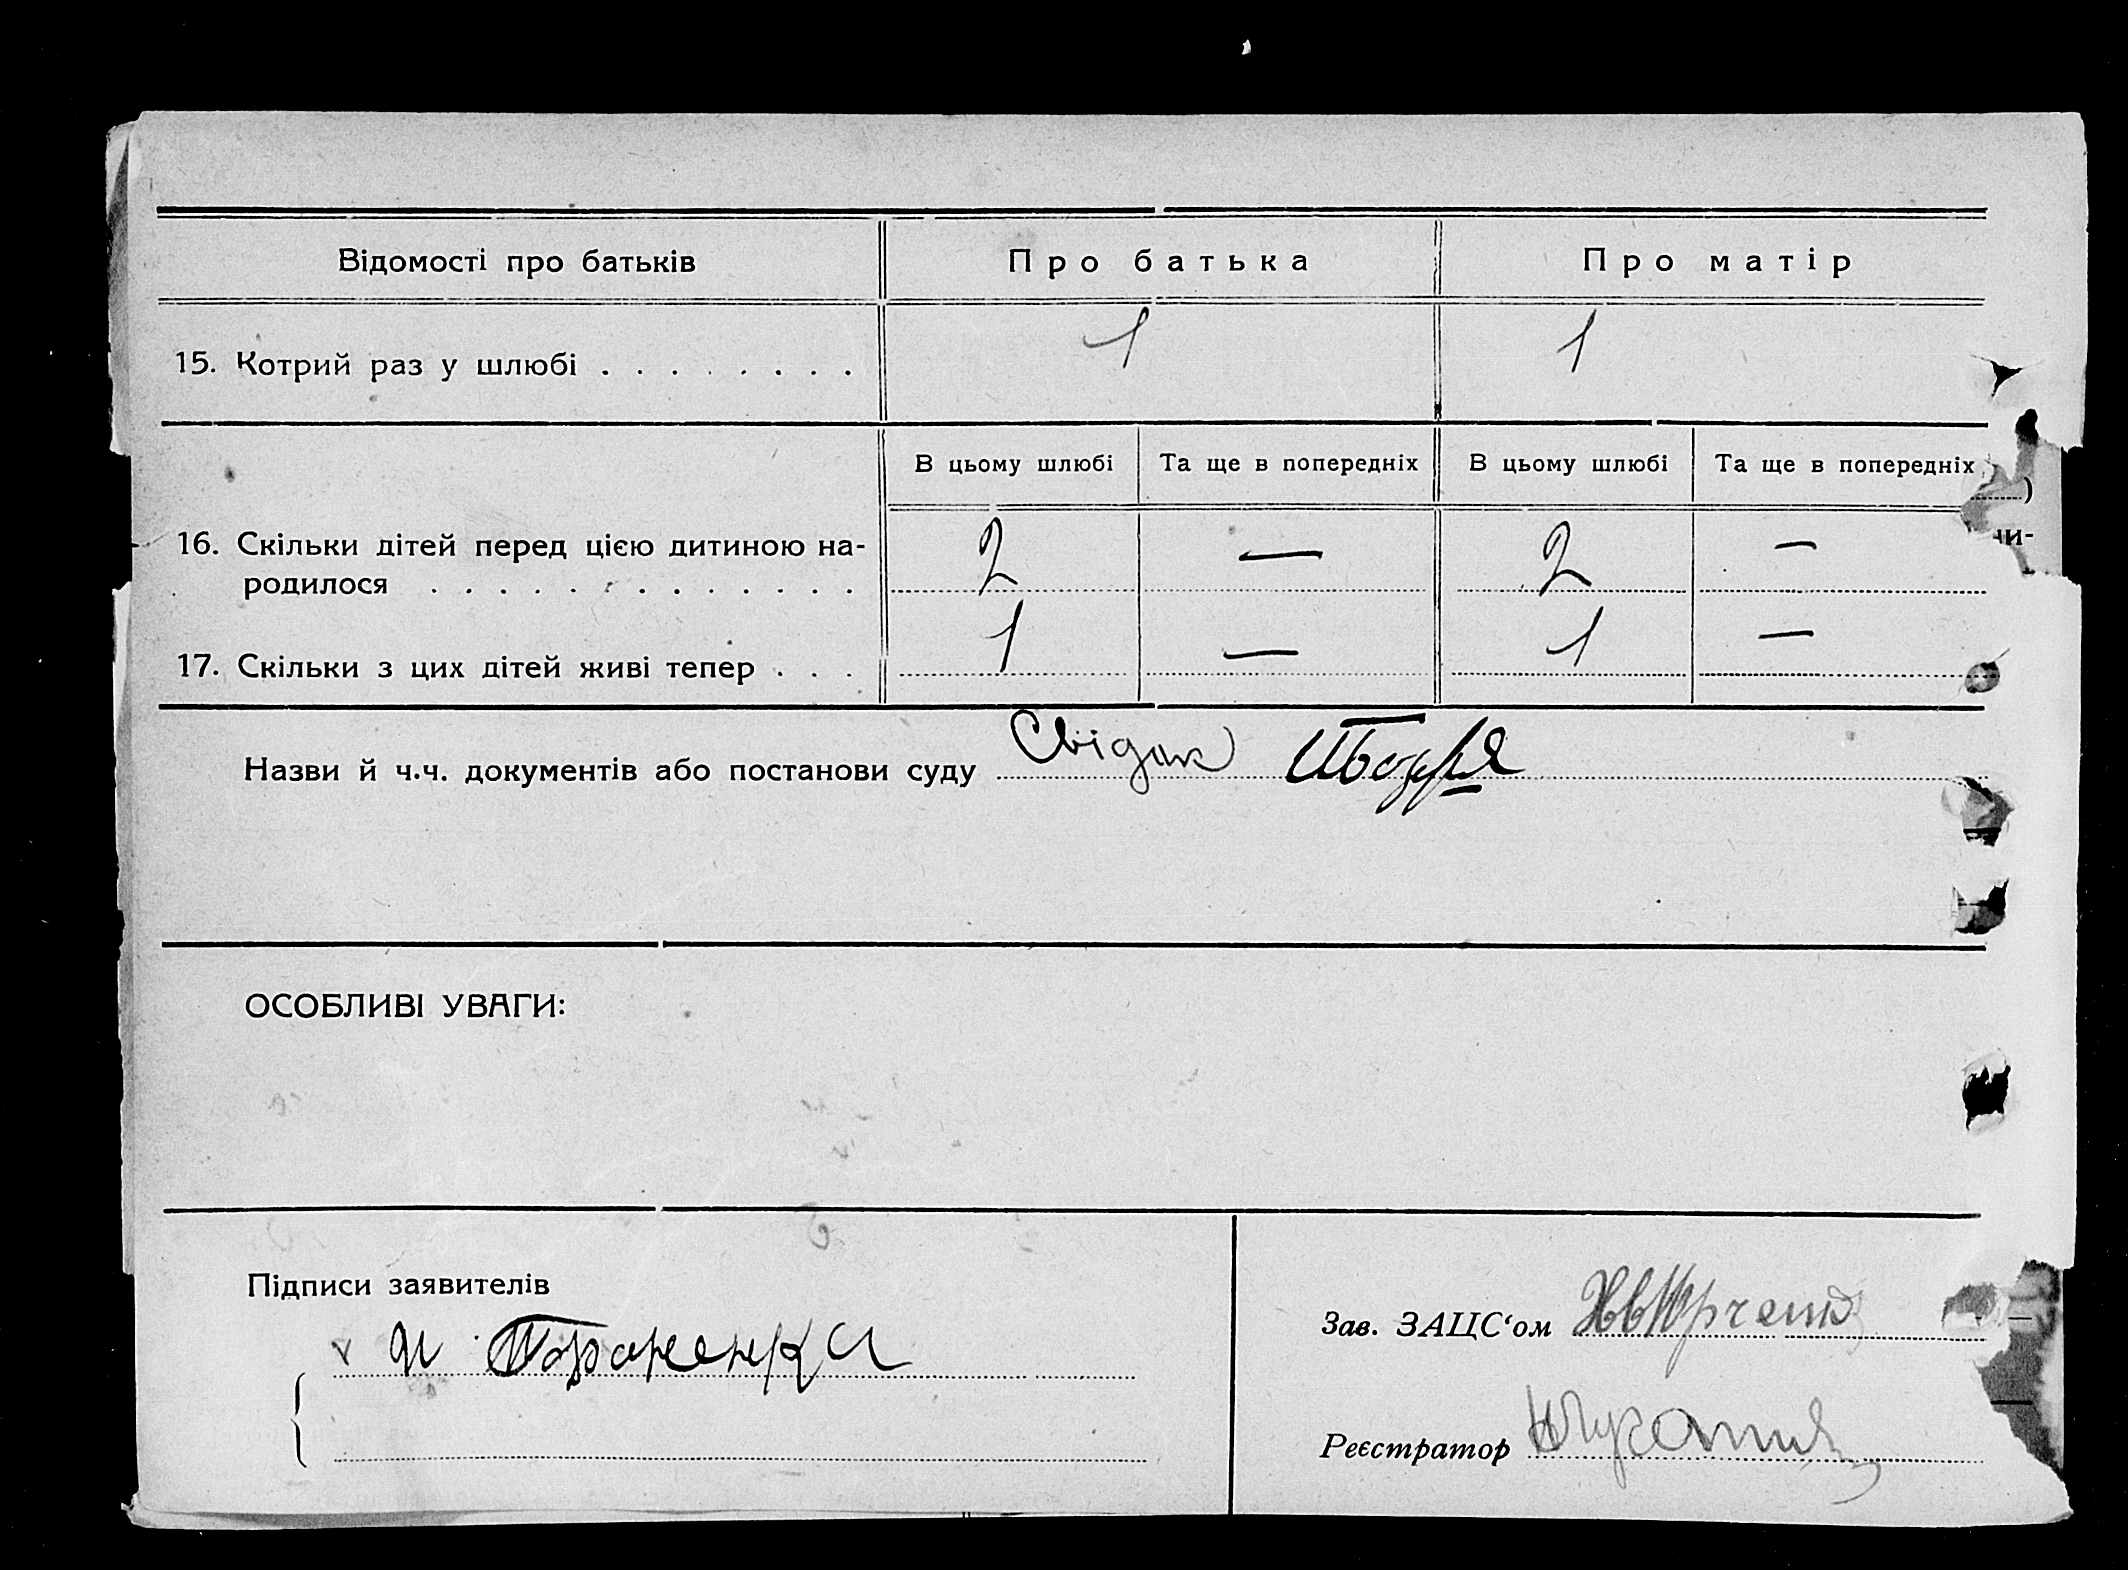 Відомості про батьків Про батька Про матір
15. Котрий раз у шлюбі . . . . . . . . 1 1
В цьому шлюбі Та ще в попередніх В цьому шлюбі Та ще в попередніх
)
16. Скільки дітей перед цією дитиною на- 2 — 2 —
родилося . . . . . . . . . . . . .
17. Скільки з цих дітей живі тепер . . . 1 — 1 —
Назви й ч.ч. документів або постанови суду Свідок
ОСОБЛИВІ УВАГИ:
Підписи заявителів
Зав. ЗАЦС‘ом
Реєстратор